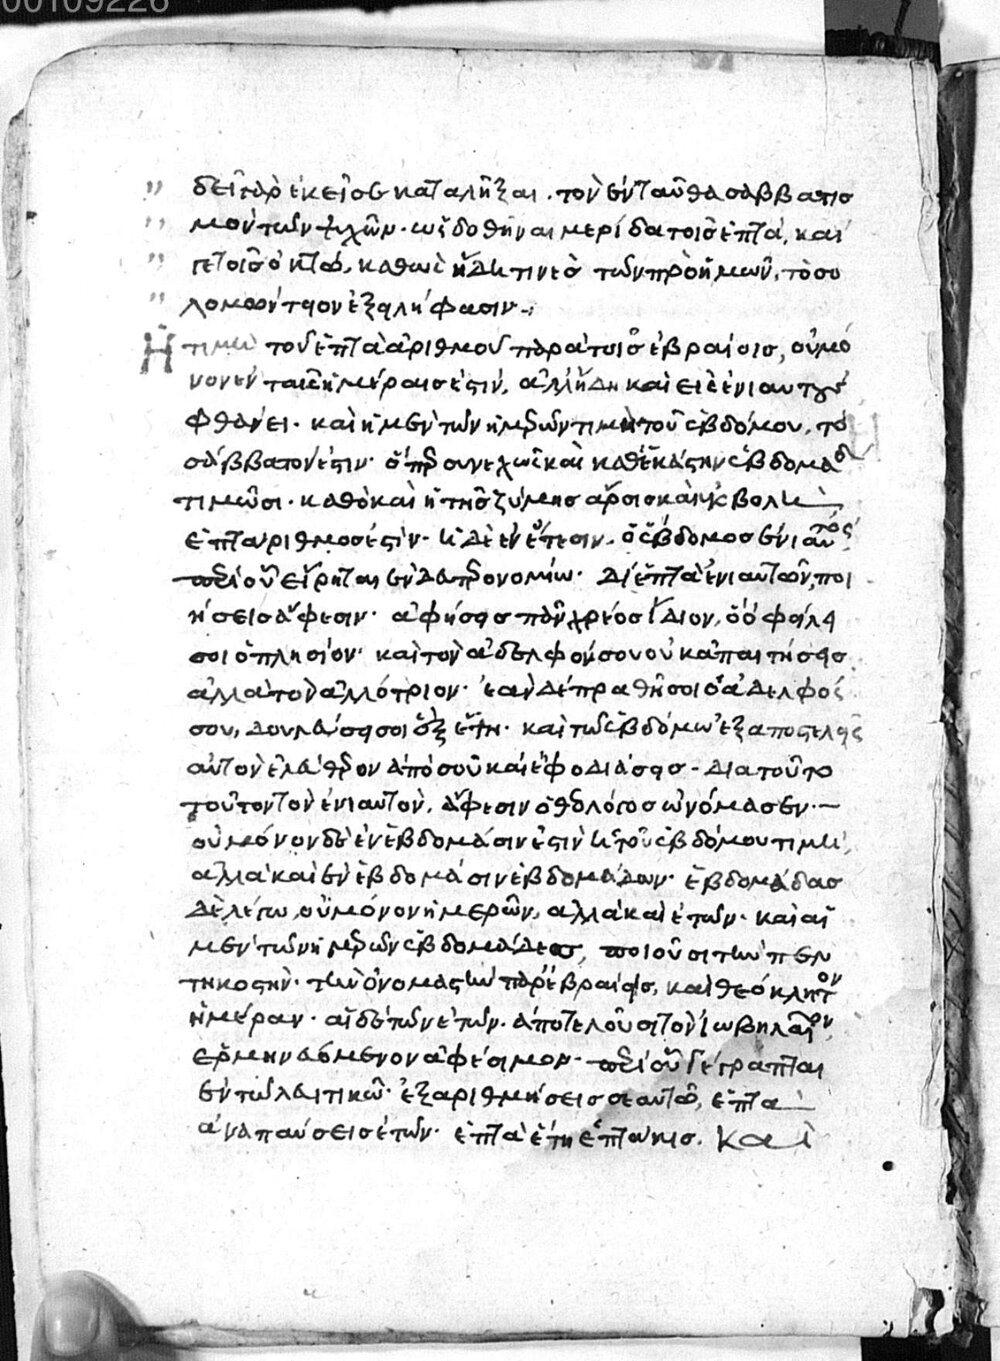 00109226
δεῖ γὰρ ἐκεῖσε καταλῆξαι. τὸν ἐνταῦθα σαββατισ
μὸν τῶν ψυχῶν. ὡς δοθῆναι μερίδα τοῖς ἑπτὰ, καί
γε τοῖς ὀκτώ, καθὼς ἤδη τινὲς τῶν πρὸ ἡμῶν, τὸ σο
λομώντειον ἐξειλήφασιν·
Ἡ τιμὴ τοῦ ἑπτὰ ἀριθμοῦ παρὰ τοῖς ἑβραίοις, οὐ μό
νον ἐν ταῖς ἡμέραις ἐστίν, ἀλλ' ἤδη καὶ εἰς ἐνιαυτοὺς
φθάνει. καὶ ἡ μὲν τῶν ἡμερῶν τιμὴ τοῦ ἑβδόμου, τὸ
σάββατόν ἐστιν· ὅπερ συνεχῶς καὶ καθ' ἑκάστην ἑβδομάδα
τιμῶσι. καθὸ καὶ ἡ τῆς ζύμης ἄρσις καὶ ἐκβολὴ
ἑπτὰ ἀριθμός ἐστιν· ἡ δὲ ἐν ἔτεσιν. ὁ ἕβδομος ἐνιαυτός
περὶ οὗ εἴρηται ἐν δευτερονομίῳ. δι' ἑπτὰ ἐνιαυτῶν, ποι
ήσεις ἄφεσιν· ἀφήσεις πᾶν χρέος ἴδιον, ὃ ὀφείλει
σοι ὁ πλησίον· καὶ τὸν ἀδελφόν σου οὐκ ἀπαιτήσεις
ἀλλὰ τὸν ἀλλότριον· ἐὰν δὲ πραθῆ σοι ὁ ἀδελφός
σου, δουλεύσει σοι ἓξ ἔτη· καὶ τῶ ἑβδόμω ἐξαποστελεῖς
αὐτὸν ἐλεύθερον ἀπὸ σοῦ καὶ ἐφοδιάσεις - διὰ τοῦτο
τοῦτον τὸν ἐνιαυτὸν, ἄφεσιν ὁ θεολόγος ὠνόμασεν·
οὐ μόνον δὲ ἐν ἑβδομάσιν ἐστὶν ἡ τοῦ ἑβδόμου τιμὴ,
ἀλλὰ καὶ ἐν ἑβδομάσιν ἑβδομάδων· ἑβδομάδας
δὲ λέγω, οὐ μόνον ἡμερῶν, ἀλλὰ καὶ ἐτῶν· καὶ αἱ
μὲν τῶν ἡμερῶν ἑβδομάδες, ποιοῦσι τὴν πεν
τηκοστήν· τὴν ὀνομαστὴν παρ' ἑβραίοις, καὶ θεόκλητον
ἡμέραν· αἱ δὲ τῶν ἐτῶν. ἀποτελοῦσι τὸν ἰωβηλαῖον,
ἑρμηνευόμενον ἀφέσιμον· περὶ οὗ γέγραπται
ἐν τῶ λευιτικῶ· ἐξαριθμήσεις σεαυτῶ, ἑπτὰ
ἀναπαύσεις ἐτῶν· ἑπτὰ ἔτη ἑπτάκις. καὶ